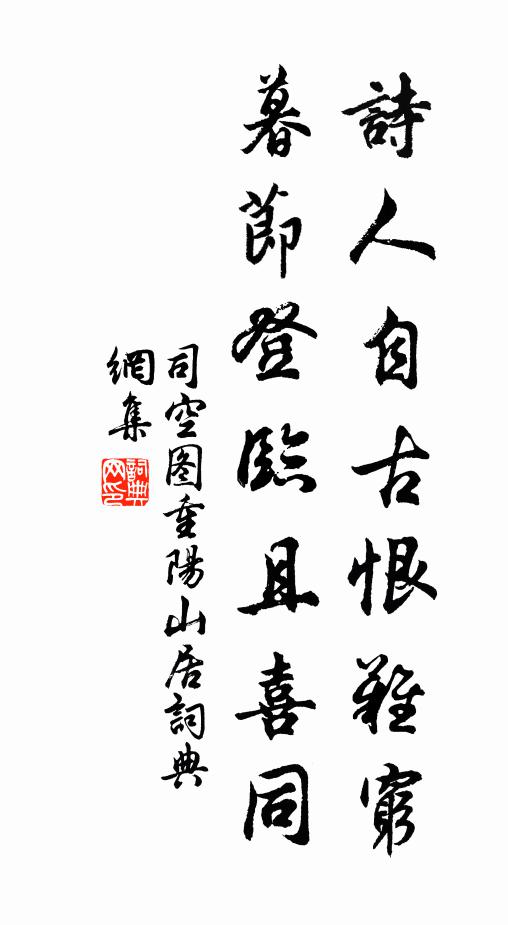 詩人自古恨難窮
暮節登臨且喜同
司空图重陽山居詞典
網集
詞典網印